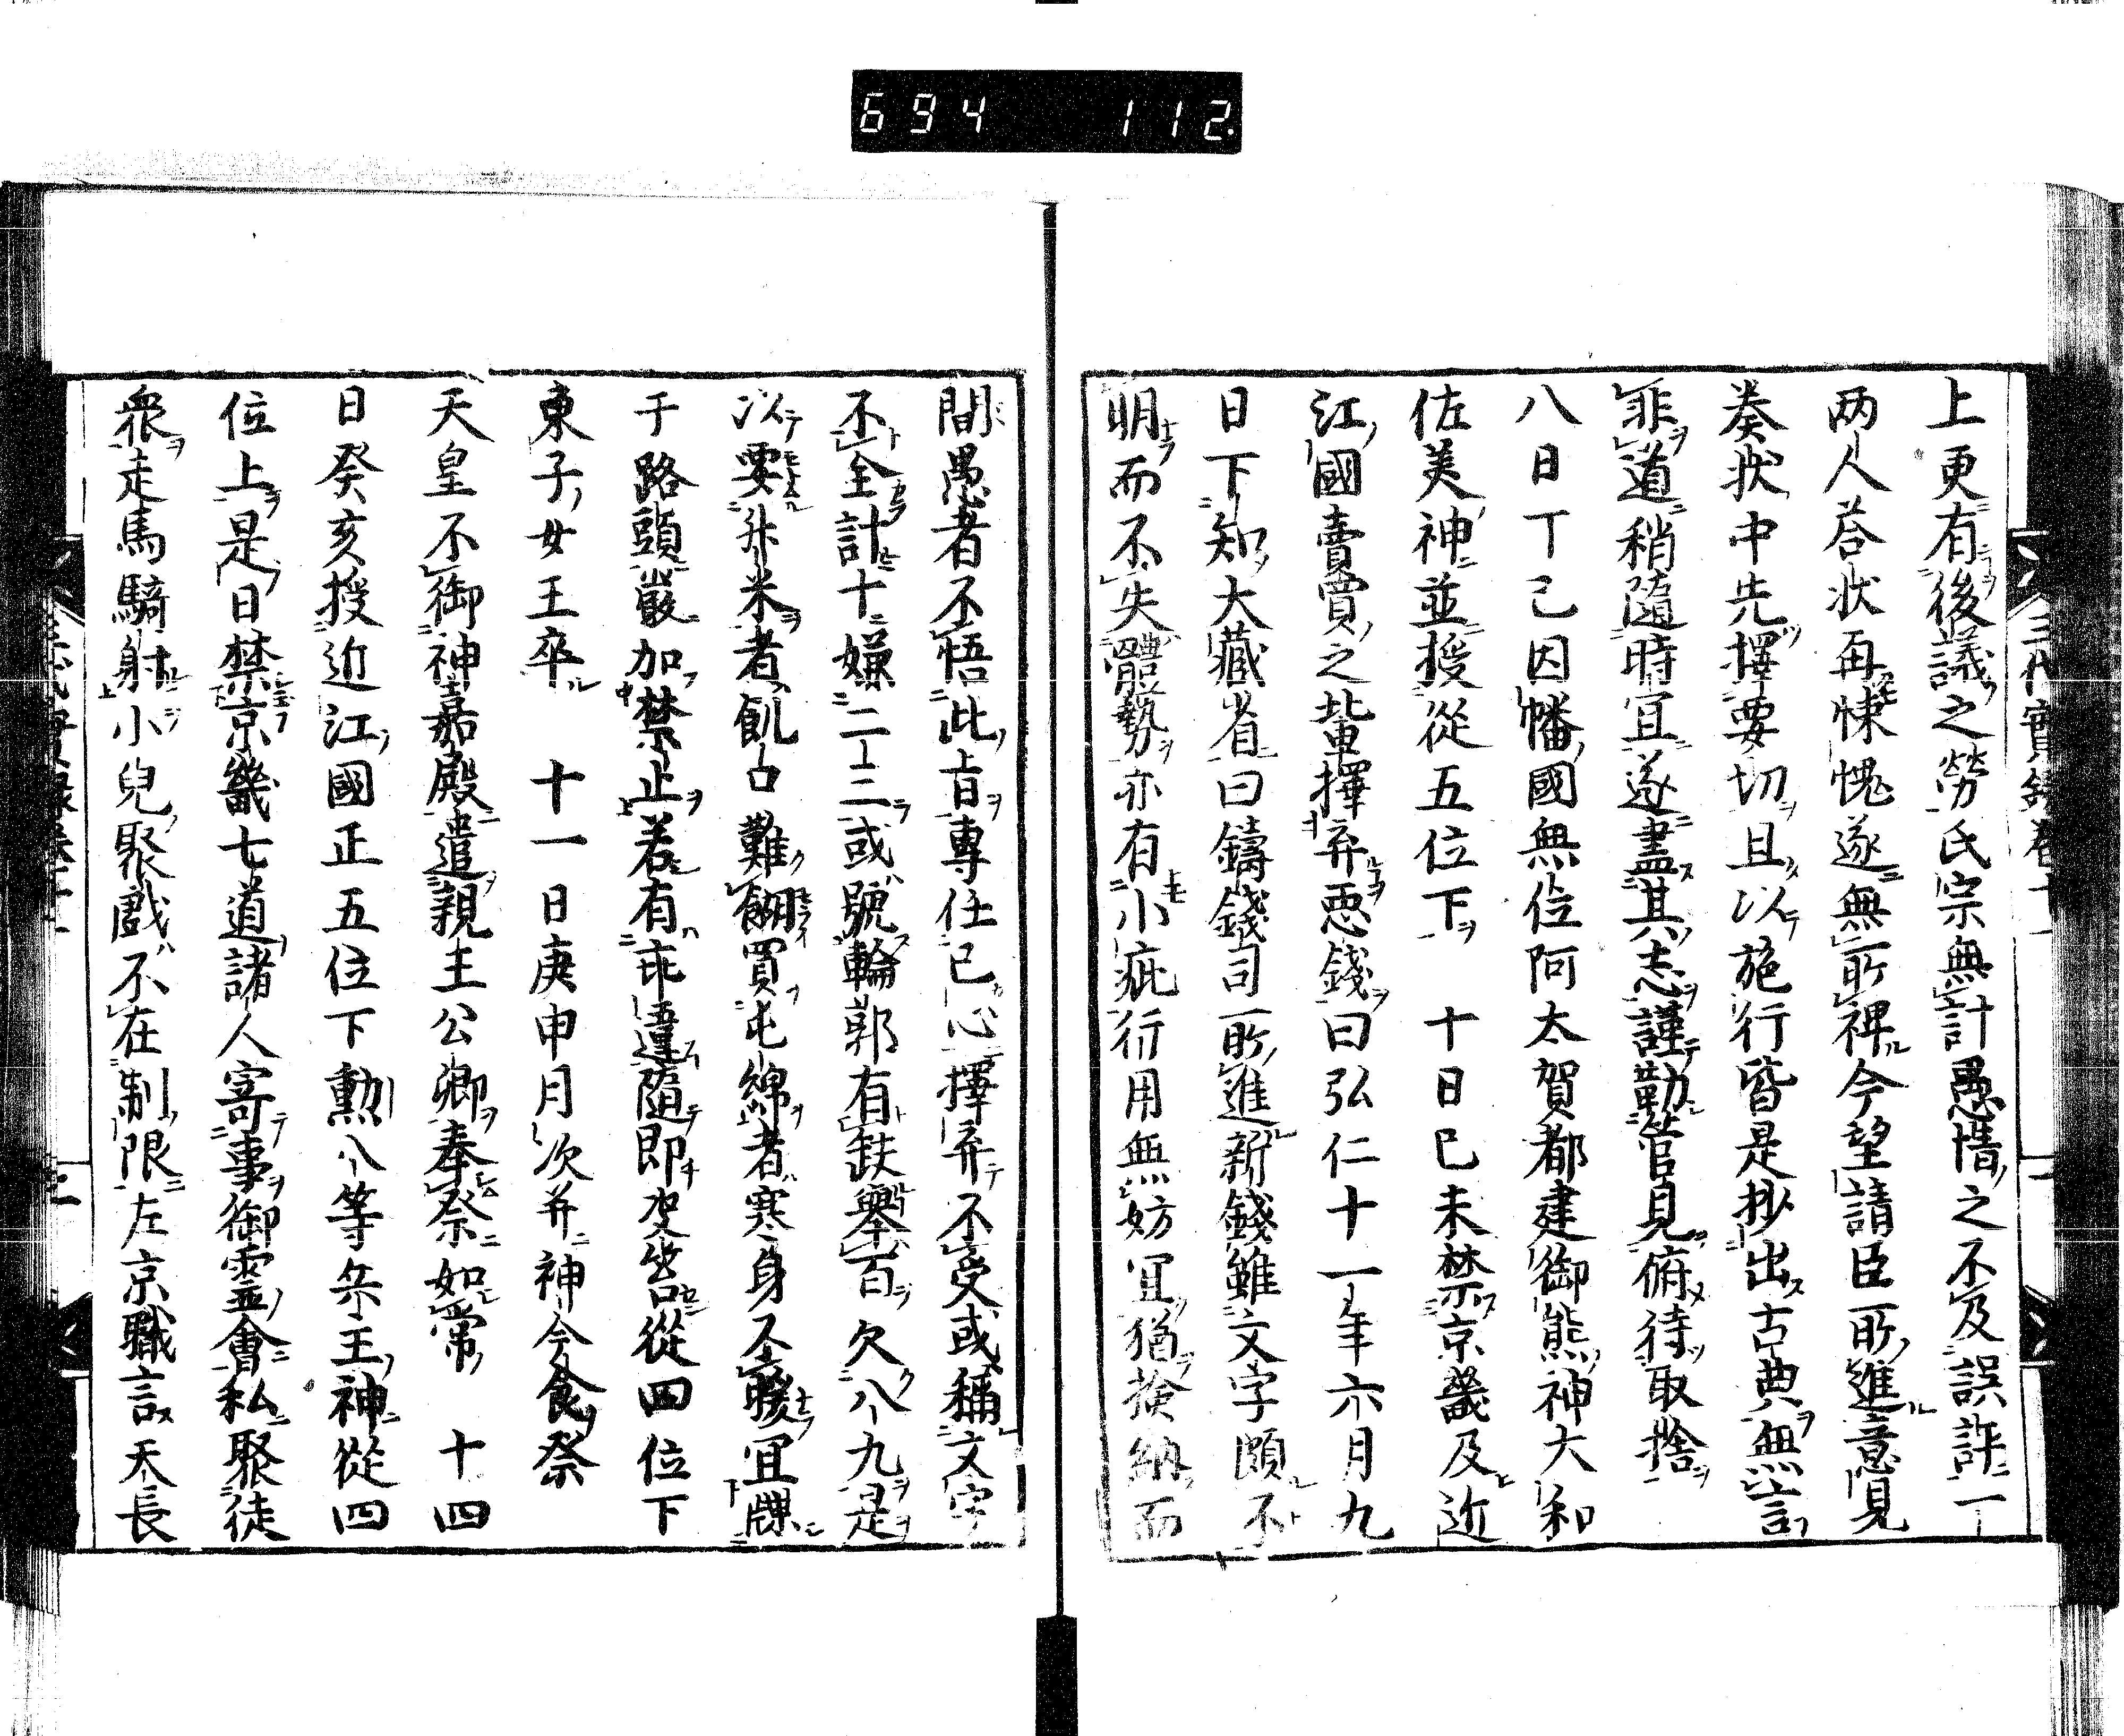 694 112.
上更有後議之勞氏宗無計愚惜之不及誤詐一丁
两人荅状再悚愧遂無所裨今望請臣所進意見
奏状中先擇要切且以施行皆是抄出古典無言
非道稍隨時宜遂盡其志謹勒管見俯待取捨
八日丁巳因幡國無位阿太賀都建御熊神大和
佐美神並授從五位下　十日己未禁京畿及近
江國賣買之輩擇弃悪錢曰弘仁十一年六月九
日下知大藏省曰鑄錢司所進新錢雖文字頗不
明而不失體勢亦有小疵行用無妨宜猶撿納而
間愚者不悟此旨專任己心擇弃不受或稱文字
不全計十嫌二三或號輪郭有缺舉百欠八九是
以要升米者飢口難餬買屯綿者寒身不暖宜牓
于路頭嚴加禁止若有乖違隨即决笞從四位下
東子女王卒　十一日庚申月次并神今食祭
天皇不御神嘉殿遣親王公卿奉祭如常　十四
日癸亥授近江國正五位下勲八等兵主神從四
位上是日禁京畿七道諸人寄事御霊會私聚徒
衆走馬騎射小兒聚戯不在制限左京職言天長